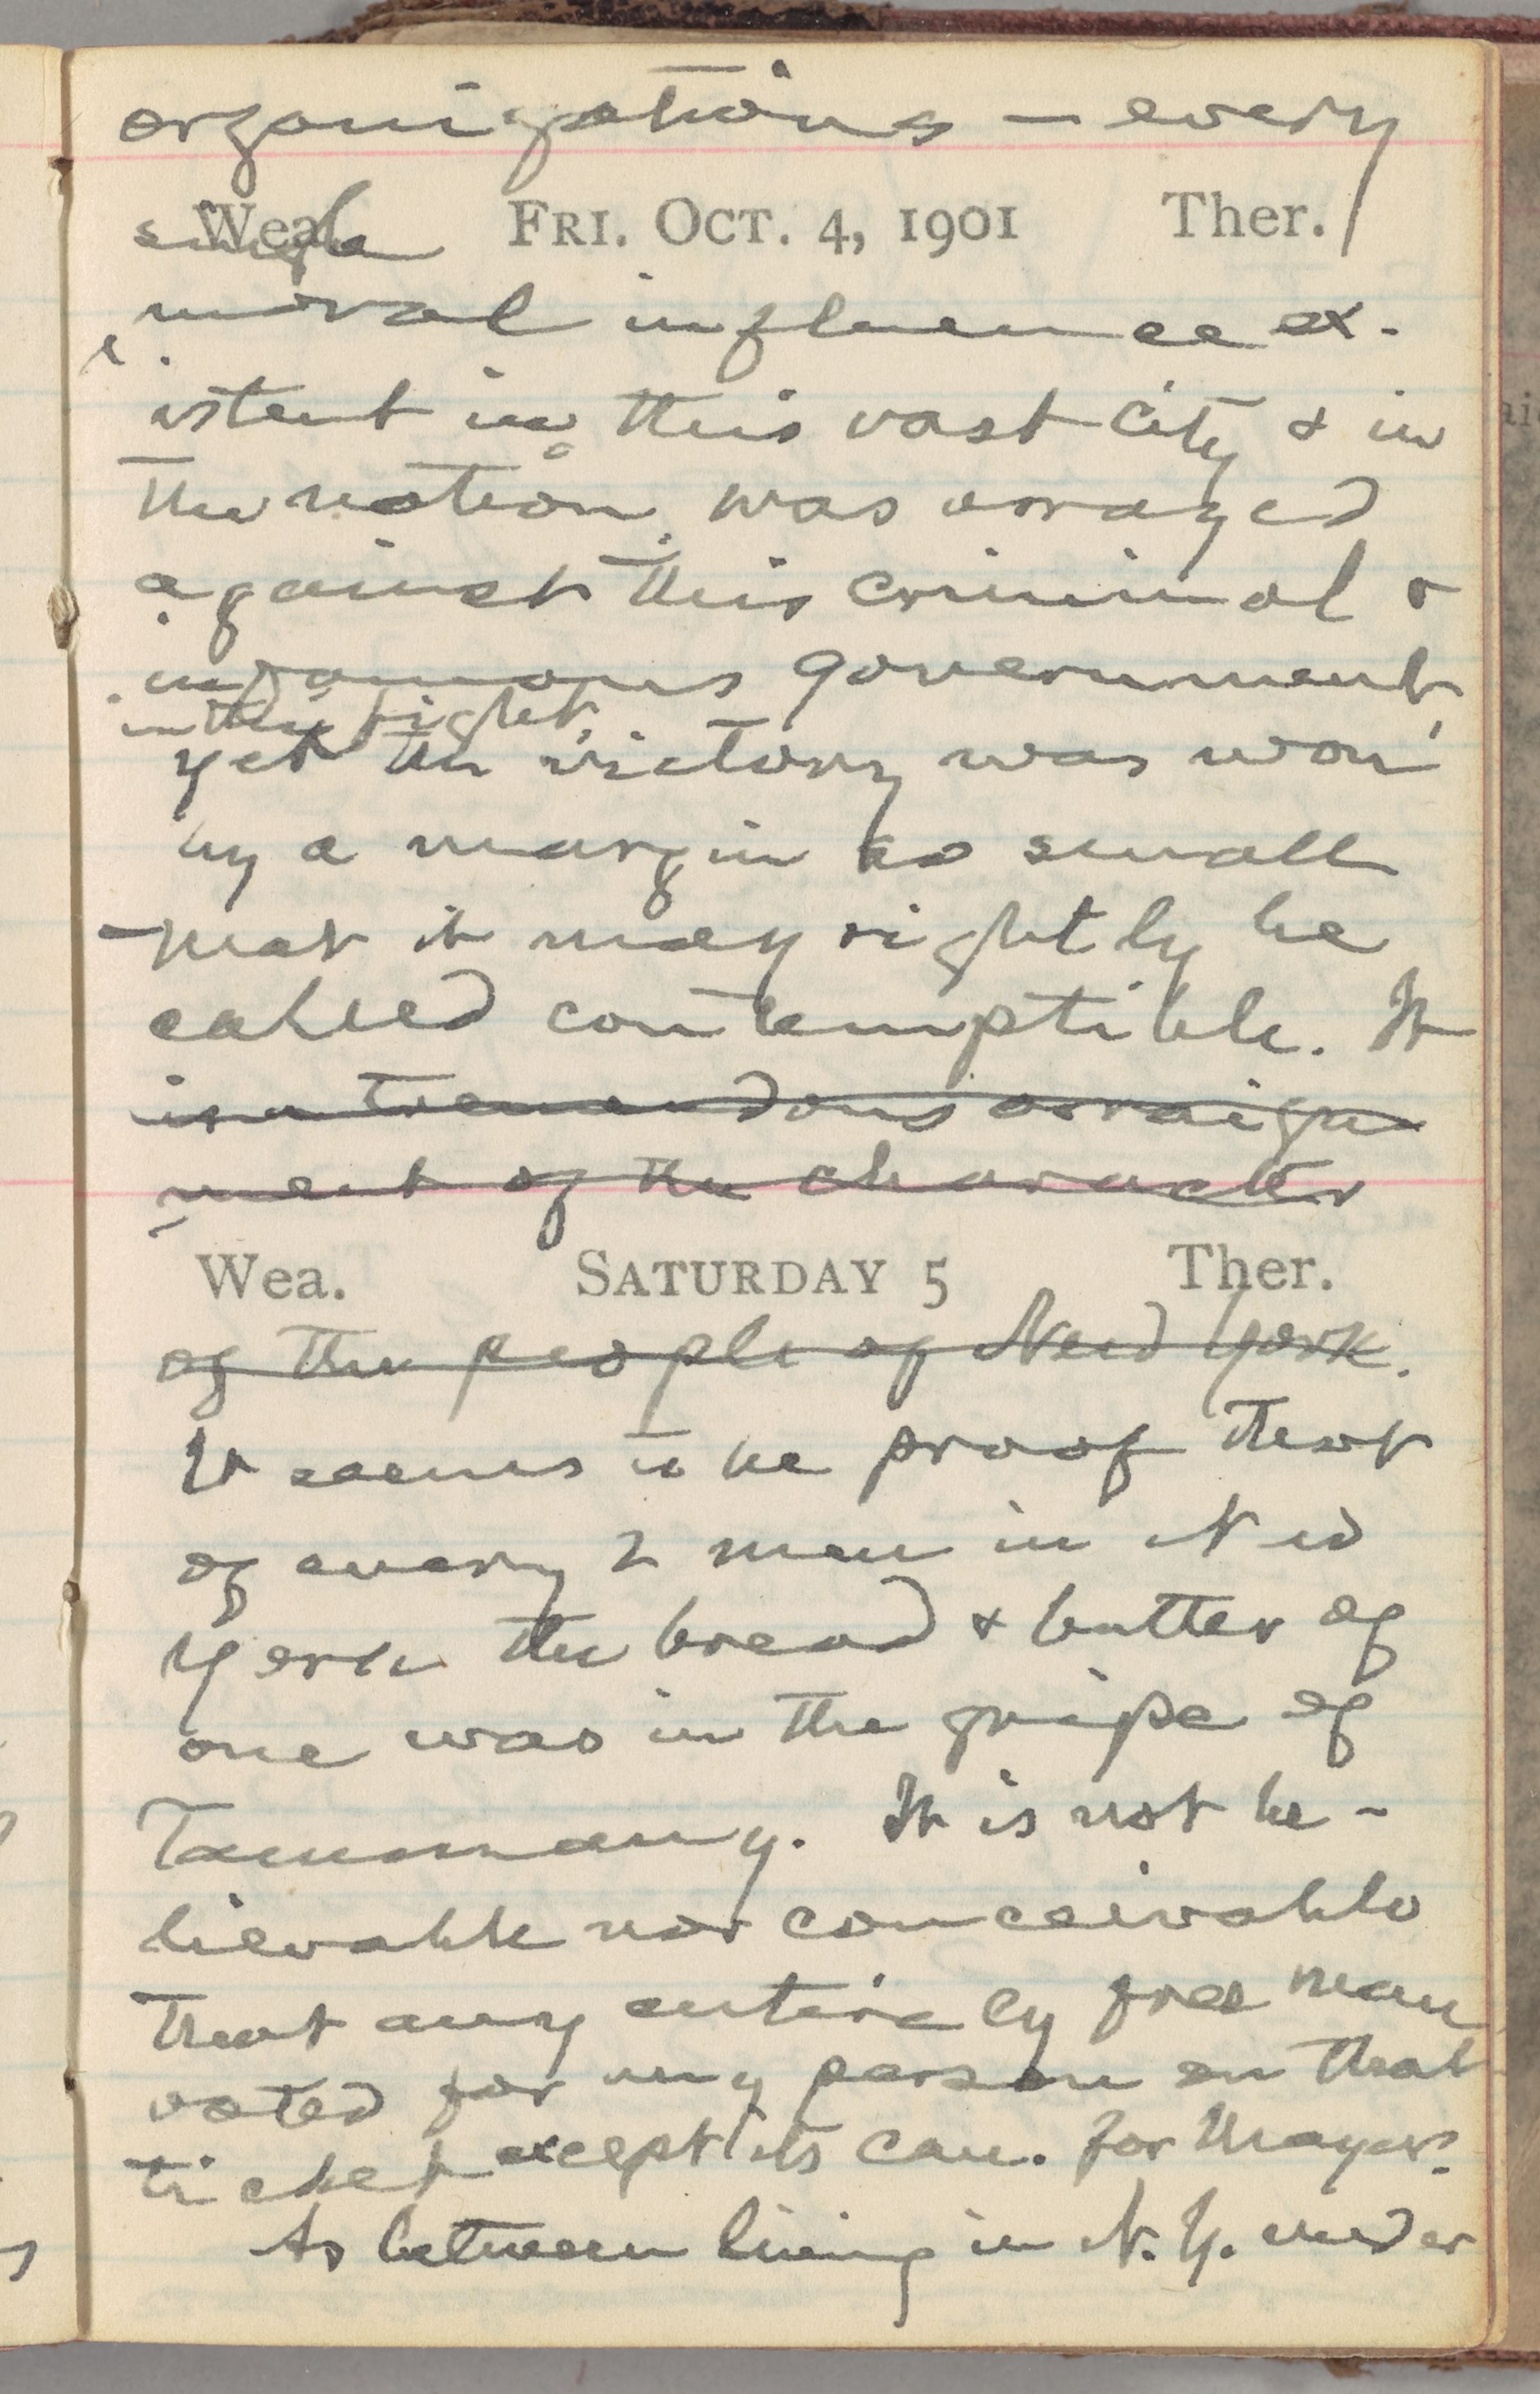 organizations — every
Wea. FRI. OCT. 4, 1901 Ther.
single
moral influence ex-
istent in this vast city & in
the nation was arrayed
against this criminal &
infamous government,
in this fight,
yet the victory was won
by a margin so small
that it may rightly be
called contemptible. It
is a tremendous arraign
ment of the character
Wea. SATURDAY 5 Ther.
of the people of New York.
It seems to be proof that
of every 2 men in New
York the bread & butter of
one was in the gripe of
Tammany. It is not be-
lievable nor conceivable
that any entirely free man
voted for any person on that
ticket except its can. for Mayor.
As between living in N. Y. under